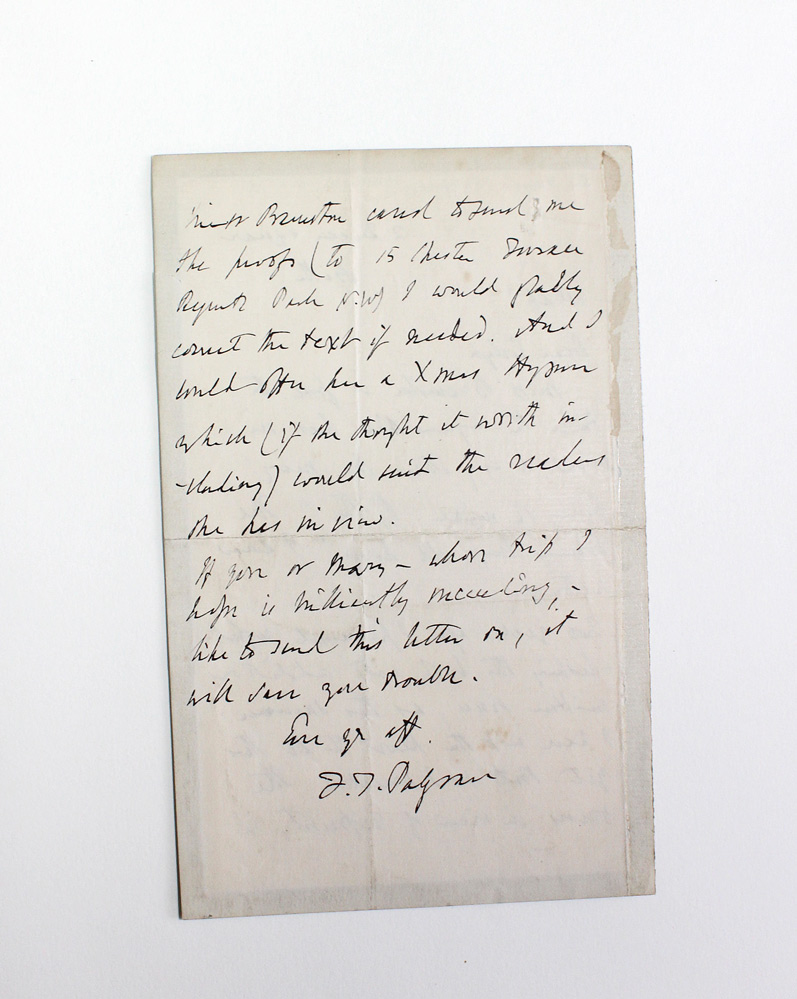 Miss Bramston cared to send me
the proofs (to 15 Chester Terrace
Regents Park N.W) I would gladly
correct the text if needed. And I
could offer her a Xmas Hymn
which (if she thought it worth in-
-cluding) would suit the readers
she has in view.
If you or Mary – whose trip I
hope is brilliantly succeeding, –
like to send this letter on, it
will save you trouble.
Ever yr aff.
F. T. Palgrave